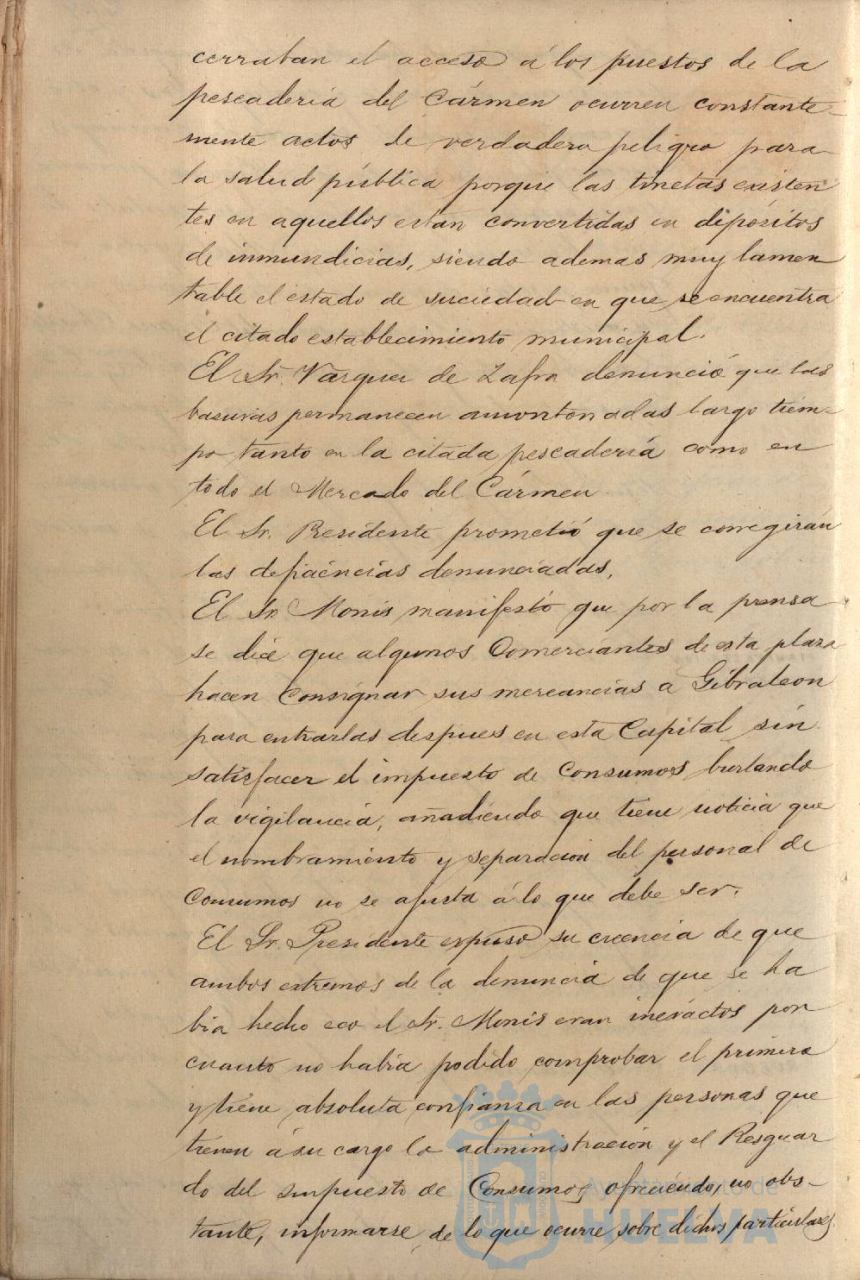 cerraban el acceso á los puestos de la
pescadería del Cármen ocurren constante-
mente actos de verdadero peligro para
la salud pública porque las tinetas existen
tes en aquellos están convertidas en depósitos
de inmundicias, siendo ademas muy lamen
table el estado de suciedad en que se encuentra
el citado establecimiento municipal.
El Sr. Vazquez de Zafra denunció que las
basuras permanecen amontonadas largo tiem-
po tanto en la citada pescadería como en
todo el Mercado del Cármen
El Sr. Presidente prometió que se corregirán
las deficiencias denunciadas.
El Sr. Monis manifestó que por la prensa
se dice que algunos Comerciantes de esta plaza
hacen consignar sus mercancias a Gibraleon
para entrarlas despues en esta Capital sin
satisfacer el impuesto de Consumos burlando
la vigilancia, añadiendo que tiene noticia que
el nombramiento y separacion del personal de
Consumos no se ajusta á lo que debe ser.
El Sr. Presidente expuso su creencia de que
ambos extremos de la denuncia de que se ha
bia hecho eco el Sr. Monis eran inexactos por
cuanto no habia podido comprobar el primero
y tiene absoluta confianza en las personas que
tienen á su cargo la administración y el Resguar
do del impuesto de Consumos ofreciendo, no obs-
tante, informarse de lo que ocurre sobre dichos particulares.
Ayuntamiento de
HUELVA